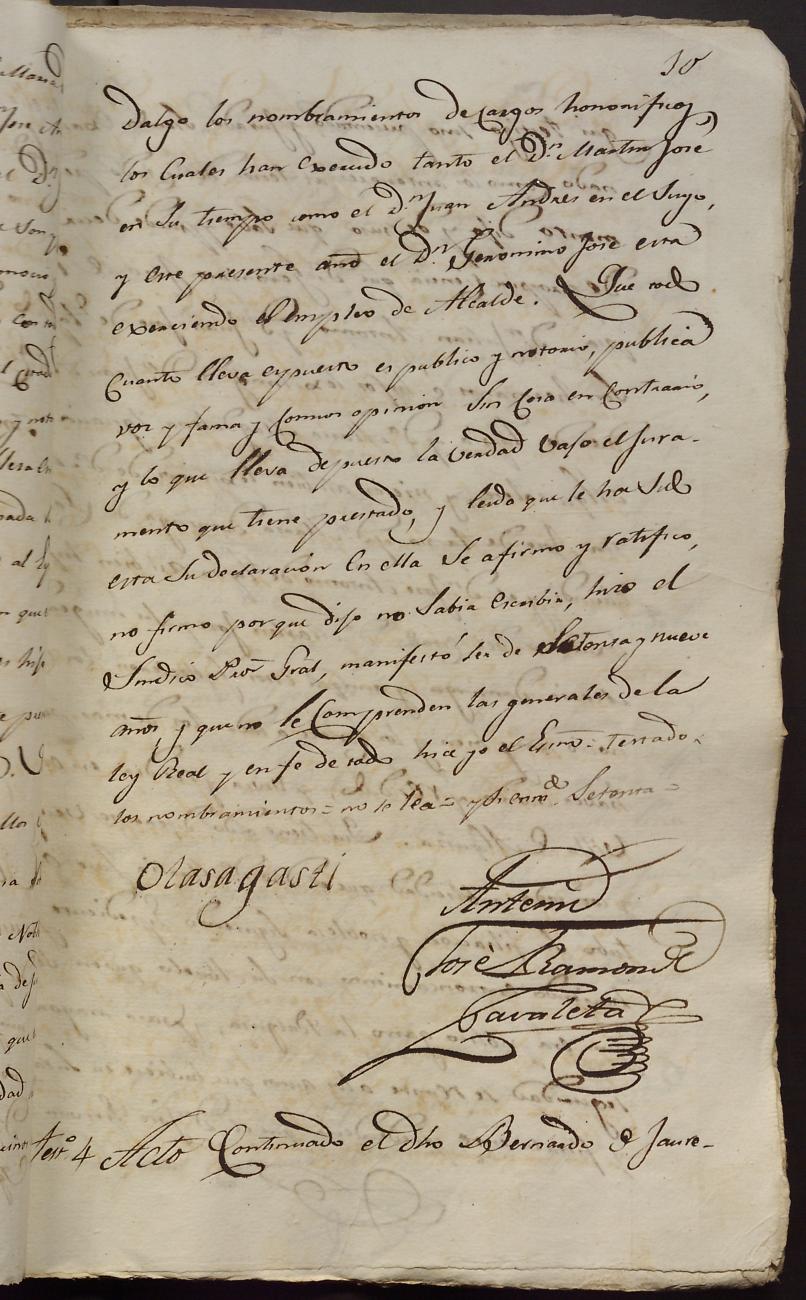 10
dalgo los nombramientos de cargos honorificos
los Cuales han exercido tanto el Dn. Martin José
en Su tiempo como el dn. Juan Andres en el Suyo,
y este presente año el Dn. Geronimo José esta
exerciendo el Empleo de Alcalde. Que todo
Cuanto lleva expuesto es publico y notorio, publica
voz y fama y Comun opinion Sin Cosa en Contrario,
y lo que lleva depuesto la Verdad vajo el Jura-
mento que tiene prestado, y leido que le ha Sido
esta Su declaracion En ella Se afirmo y ratifico,
no firmo porque dijo no Sabia Escribir, hizo el
Sindico Pror. Gral, manifestó ser de Setenta y nueve
años, y que no le Comprenden las generales de la
ley Real y en fe de todo hice yo el Esno. = Testado =
los nombramientos = no le lea = y enmdo. Setenta =
Olasagasti
Antemi
José Ramon de
Zavaleta
testo. 4 Acto Continuado el dho Bernardo de Jaure-